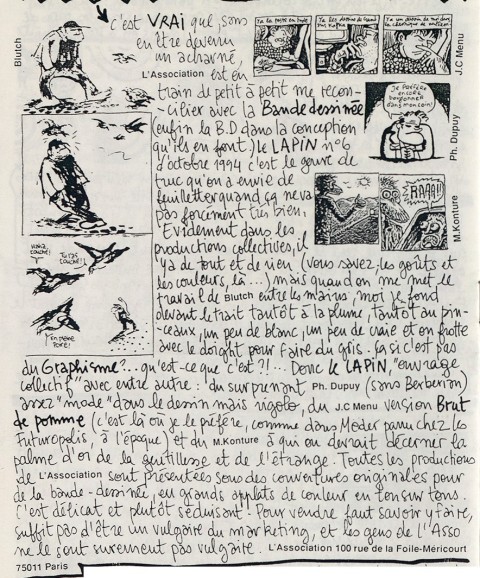 Blutch
c'est VRAI que, sans
en être devenu
un acharné,
L'Association est en
train de petit à petit me récon-
-cilier avec la Bande dessinée
(enfin la B.D dans la conception
qu'ils en font) le LAPIN n°6
d'octobre 1994 c'est le genre de
truc qu'on a envie de
feuilleter quand ça ne va
pas forcément très bien.
Evidement dans les
productions collectives, il
y a de tout et de rien (vous savez, les goûts et
les couleurs, là...) mais quand on me met le
travail de Blutch entre les mains, moi je fond
devant le trait tantôt à la plume, tantôt au pin-
-ceaux, un peu de blanc, un peu de craie et on frotte
avec le doigt pour faire du gris. ça si c'est pas
du Graphisme?.. qu'est-ce que c'est?!... Donc le LAPIN, "ouvrage
collectif" avec entre autre: du surprenant Ph. Dupuy (sans Berberian)
assez "mode" dans le dessin mais rigolo, du J.C Menu version Brut
de pomme (c'est là où je le préfère, comme dans Moder paru chez les
Futuropolis, à l'époque) et du M.Konture à qui on devrait décerner la
palme d'or de la gentillesse et de l'étrange. Toutes les productions
de L'Association sont présentées sous des couvertures originales pour
de la bande-dessinée, en grands applats de couleur en ton sur tons.
C'est délicat et plutôt séduisant. Pour vendre faut savoir y faire,
suffit pas d'être un vulgaire du marketing, et les gens de L'Asso
ne le sont surement pas vulgaire. L'Association 100 rue de la Foile-Méricourt
75011 Paris
J.C Menu
Je préfère
encore
dans mon coin!
Ph. Dupuy
RAAA!!
M.Konture
Tu l'as
touché!